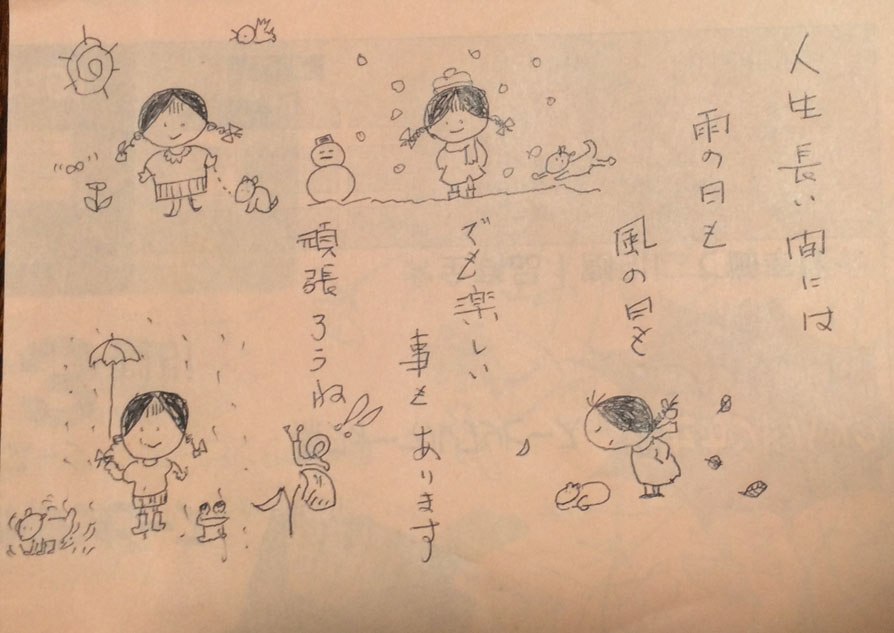 人生長い間には
雨の日も
風の日も
でも楽しい
事もあります
頑張ろうね